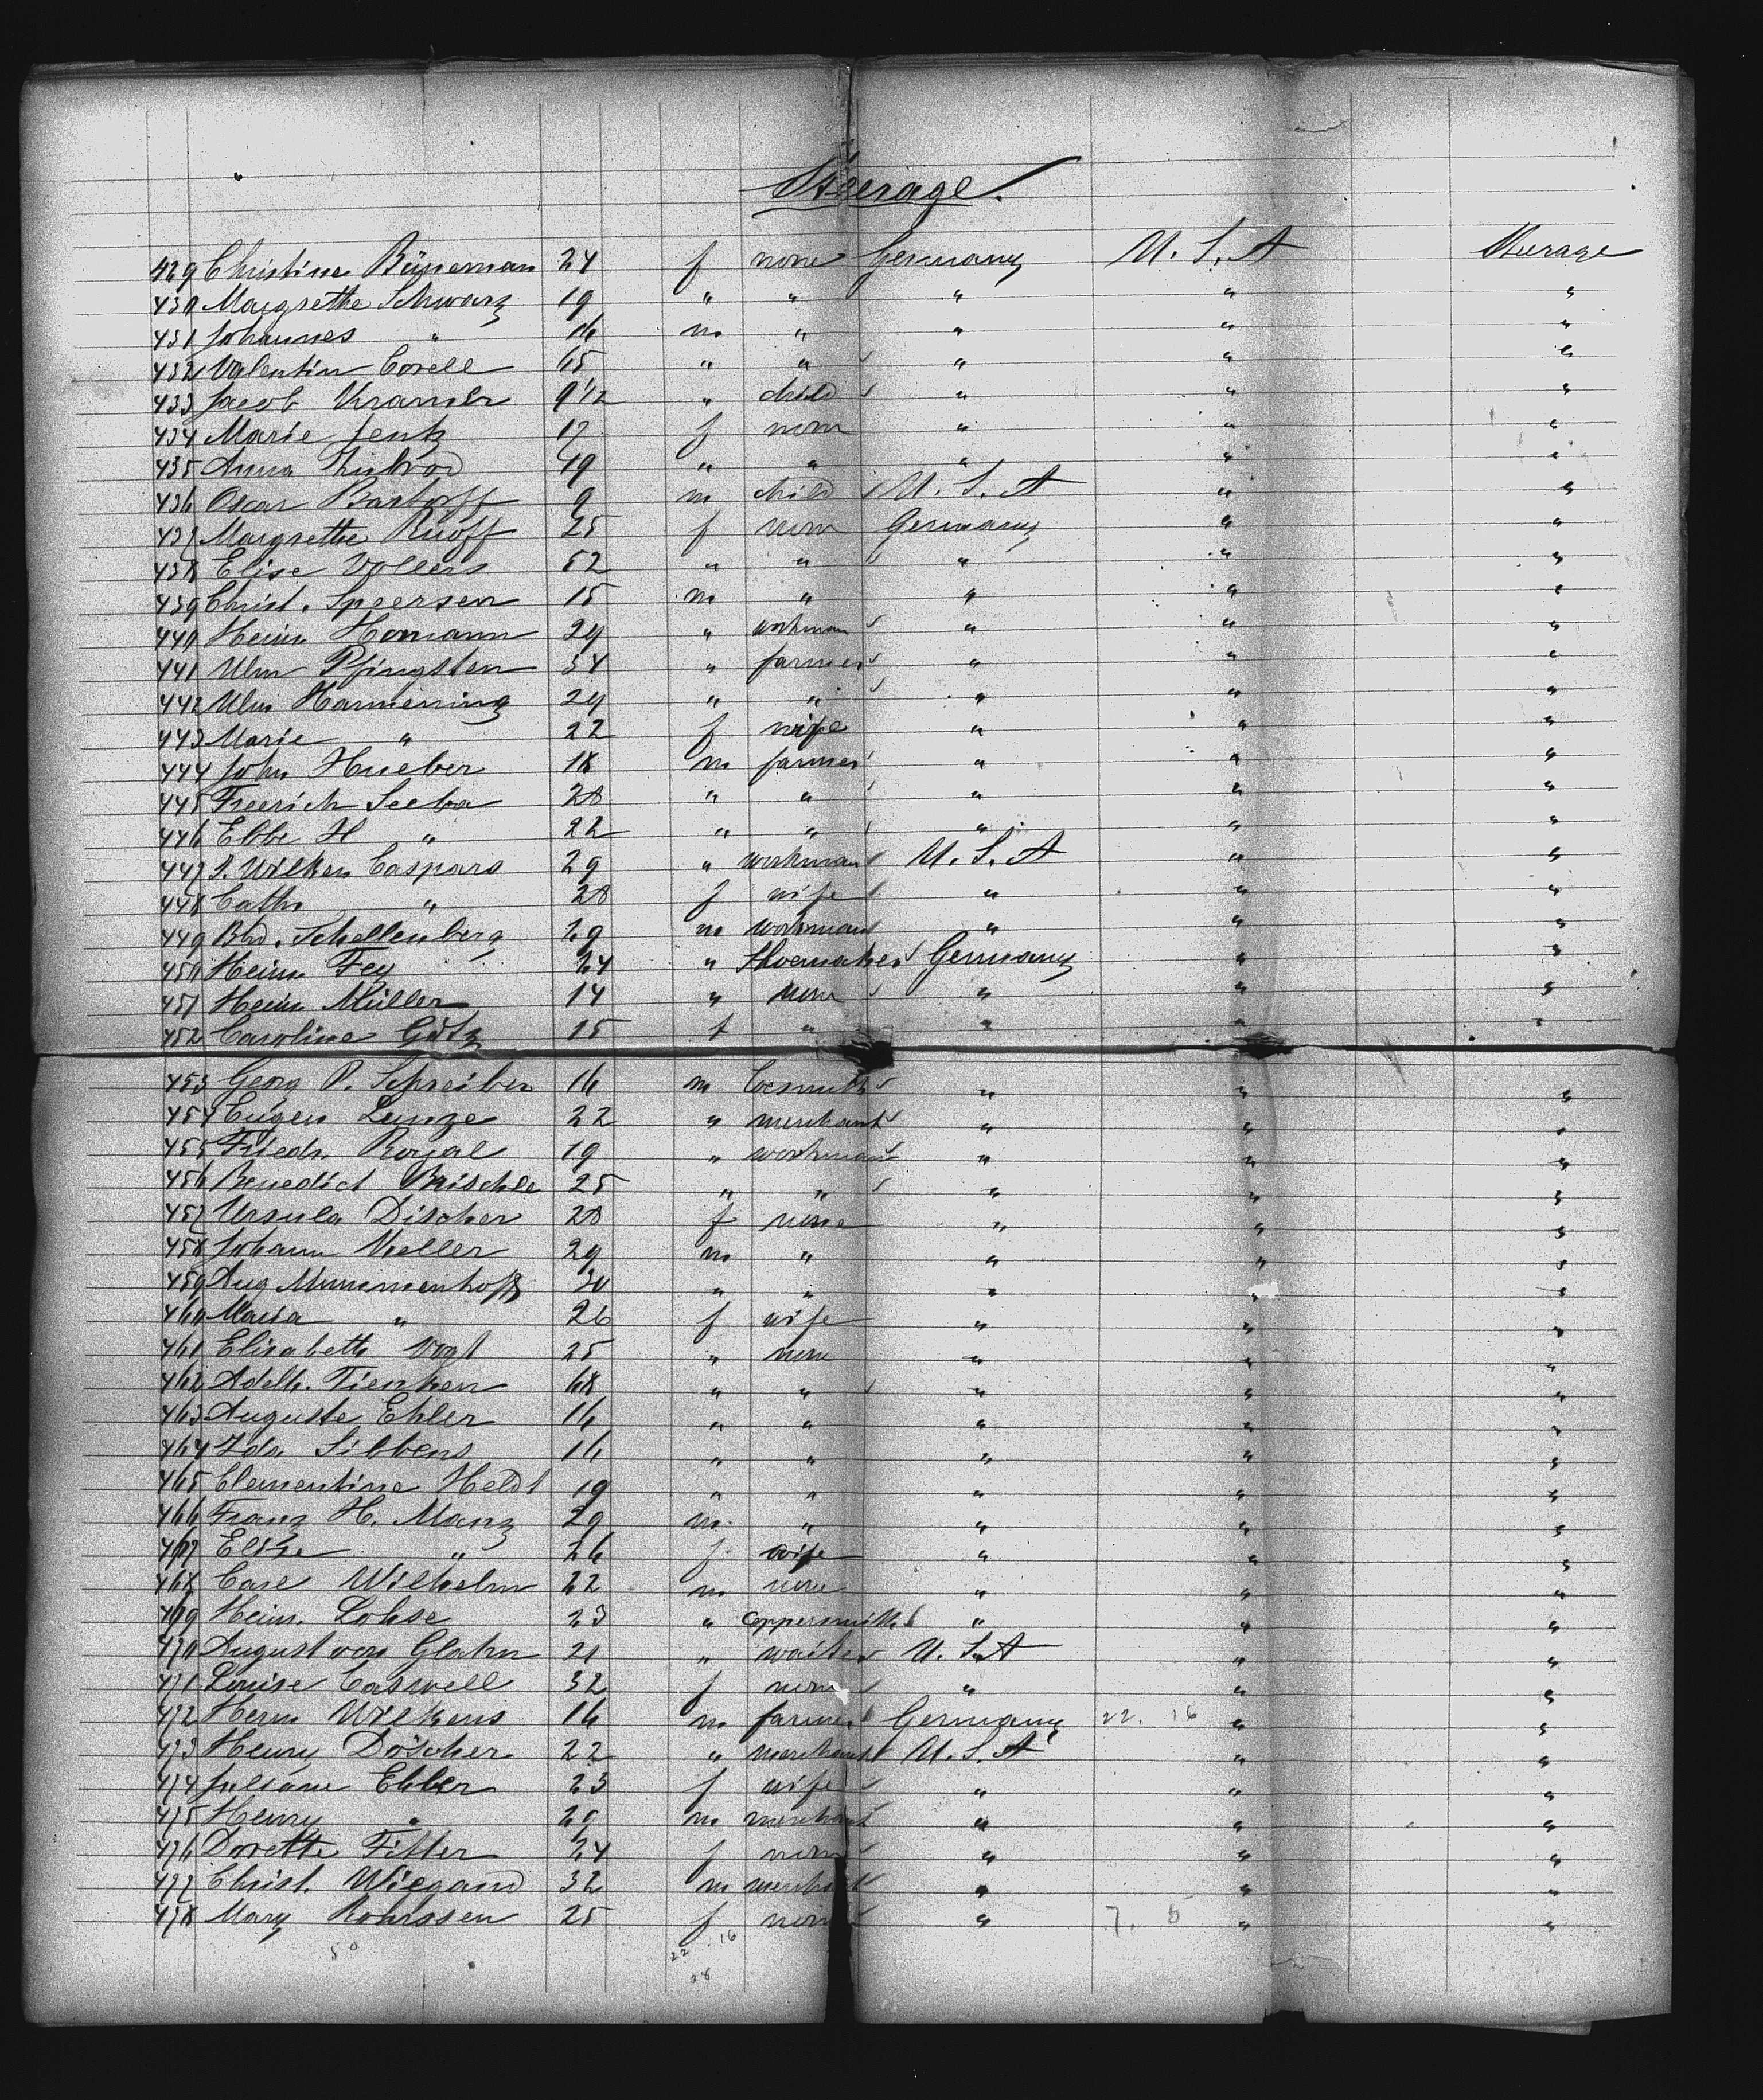 Steerage.
429 Christine Büneman 24 f none Germany U. S. A Steerage
430 Margrethe Schwarz 19 " " " " "
431 Johannes " 16 m " " " "
432 Valentin Corell 65 " " " " "
433 Jacob Kramer 9 1/2 " child " " "
434 Marie Jentz 17 f none " " "
435 Anna 19 " " " " "
436 Oscar Bartorff 9 m child U. S. A " "
437 Margrethe Ruoff 25 f none Germany " "
438 Elise Vollers 52 " " " " "
439 Christ. Speersen 15 m " " " "
440 Heinr. Homann 29 " workman " " "
441 Wm Pfingsten 34 " farmer " " "
442 Wm Harmening 29 " " " " "
443 Marie " 22 f wife " " "
444 John Hueber 18 m farmer " " "
445 Freerich Seeba 28 " " " " "
446 Ebbe H " 22 " " " " "
447 Wilken Caspars 29 " workman U. S. A " "
448 Cathr " 28 f wife " " "
449 Bhd. Schellenberg 29 m workman " " "
450 Heinr. Fey 24 " Shoemaker Germany " "
451 Heinr. Müller 14 " none " " "
452 Caroline Götz 15 f " " " "
453 Georg P. Schreiber 16 m " " "
454 Eugen Lunze 22 " merchant " " "
455 Friedr. Royal 19 " workman " " "
456 Benedict 25 " " " " "
457 Ursula Discher 28 f none " " "
458 Johann Keller 29 m " " " "
459 Aug Mummenhoff 30 " " " " "
460 Maria " 26 f wife " " "
461 Elisabeth Vogt 25 " none " " "
462 Adelh. Tienken 68 " " " " "
463 Auguste Ehler 16 " " " " "
464 Ida Sibbens 16 " " " " "
465 Clementine Heldt 19 " " " " "
466 Franz H. Manz 29 m " " " "
467 Elise " 26 f wife " " "
468 Carl Wilhelm 22 m none " " "
469 Heinr. Lohse 23 " coppersmith " " "
470 August von Glahn 21 " waiter U. S. A " "
471 Louise Caswell 32 f none " " "
472 Herm Wilkens 16 m farmer Germany 22. 16 " "
473 Henry Döscher 22 " merchant U. S. A " "
474 Juliane Ehler 23 f wife " " "
475 Henry " 29 m merchant " " "
476 Dorette Fitter 24 f none " " "
477 Christ. Wiegand 32 m merchant " " "
478 Mary Rohrssen 25 f none " 7. 5 " "
50 22 16
38